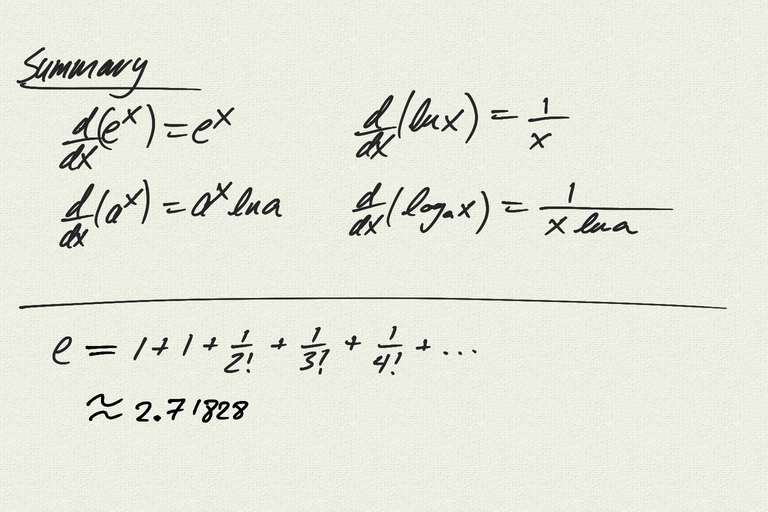 Summary
d/dx (e^x) = e^x    d/dx (ln x) = 1/x
d/dx (a^x) = a^x ln a    d/dx (log_a x) = 1/(x ln a)
e = 1 + 1 + 1/2! + 1/3! + 1/4! + ...
≈ 2.71828